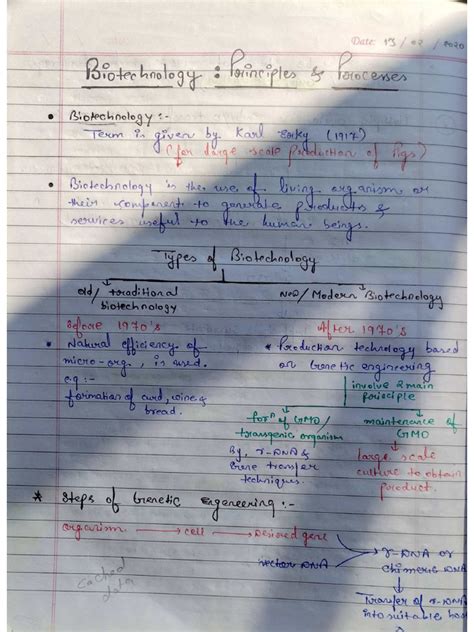 Date: 15/02/2020
Biotechnology : Principles & Processes
• Biotechnology :-
Term is given by Karl Ereky (1917)
(for large scale production of Pigs)
• Biotechnology is the use of living organism or
their component to generate products &
services useful to the human beings.
Types of Biotechnology
old/traditional
biotechnology
New/Modern Biotechnology
Before 1970's
After 1970's
• Natural efficiency of
micro-org., is used.
e.g :-
formation of curd, wine &
bread.
* Production technology based
on Genetic engineering
involve 2 main
principle
formⁿ of GMO/
transgenic organism
maintenance of
GMO
By, r-DNA &
Gene transfer
techniques.
large scale
culture to obtain
product.
* Steps of Genetic Engeneering :-
organism → cell → Desired gene
vector DNA
r-DNA or
chimeric DNA
Transfer of r-DNA
into suitable host